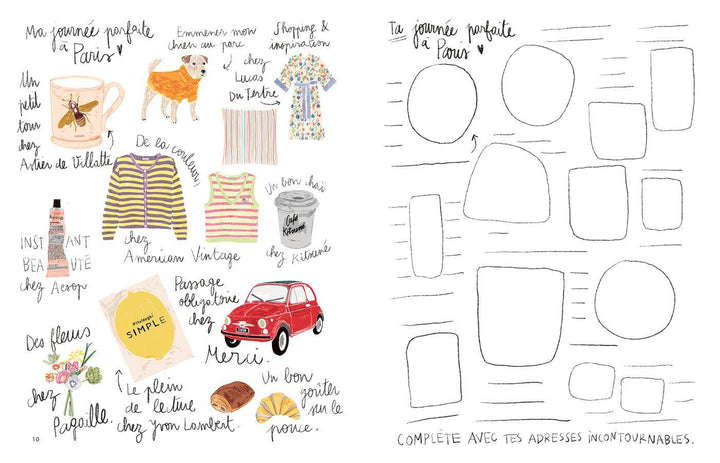 Ma journée parfaite
à Paris
Emmener mon
chien au parc
Shopping &
inspiration
chez
Lucas
Du Tertre
Un
petit
tour
chez
Astier de Villatte
De la couleur,
chez
American Vintage
Un bon chaï
Café
Kitsuné
chez Kitsuné
INSTANT
BEAUTÉ
chez Aesop
Passage
obligatoire
chez
Merci.
SIMPLE
Des fleurs
chez
Pagaille.
Le plein
de lecture
chez Yvon Lambert.
Un bon
goûter
sur le
pouce.
10
Ta journée parfaite
à Paris
COMPLÈTE AVEC TES ADRESSES INCONTOURNABLES.